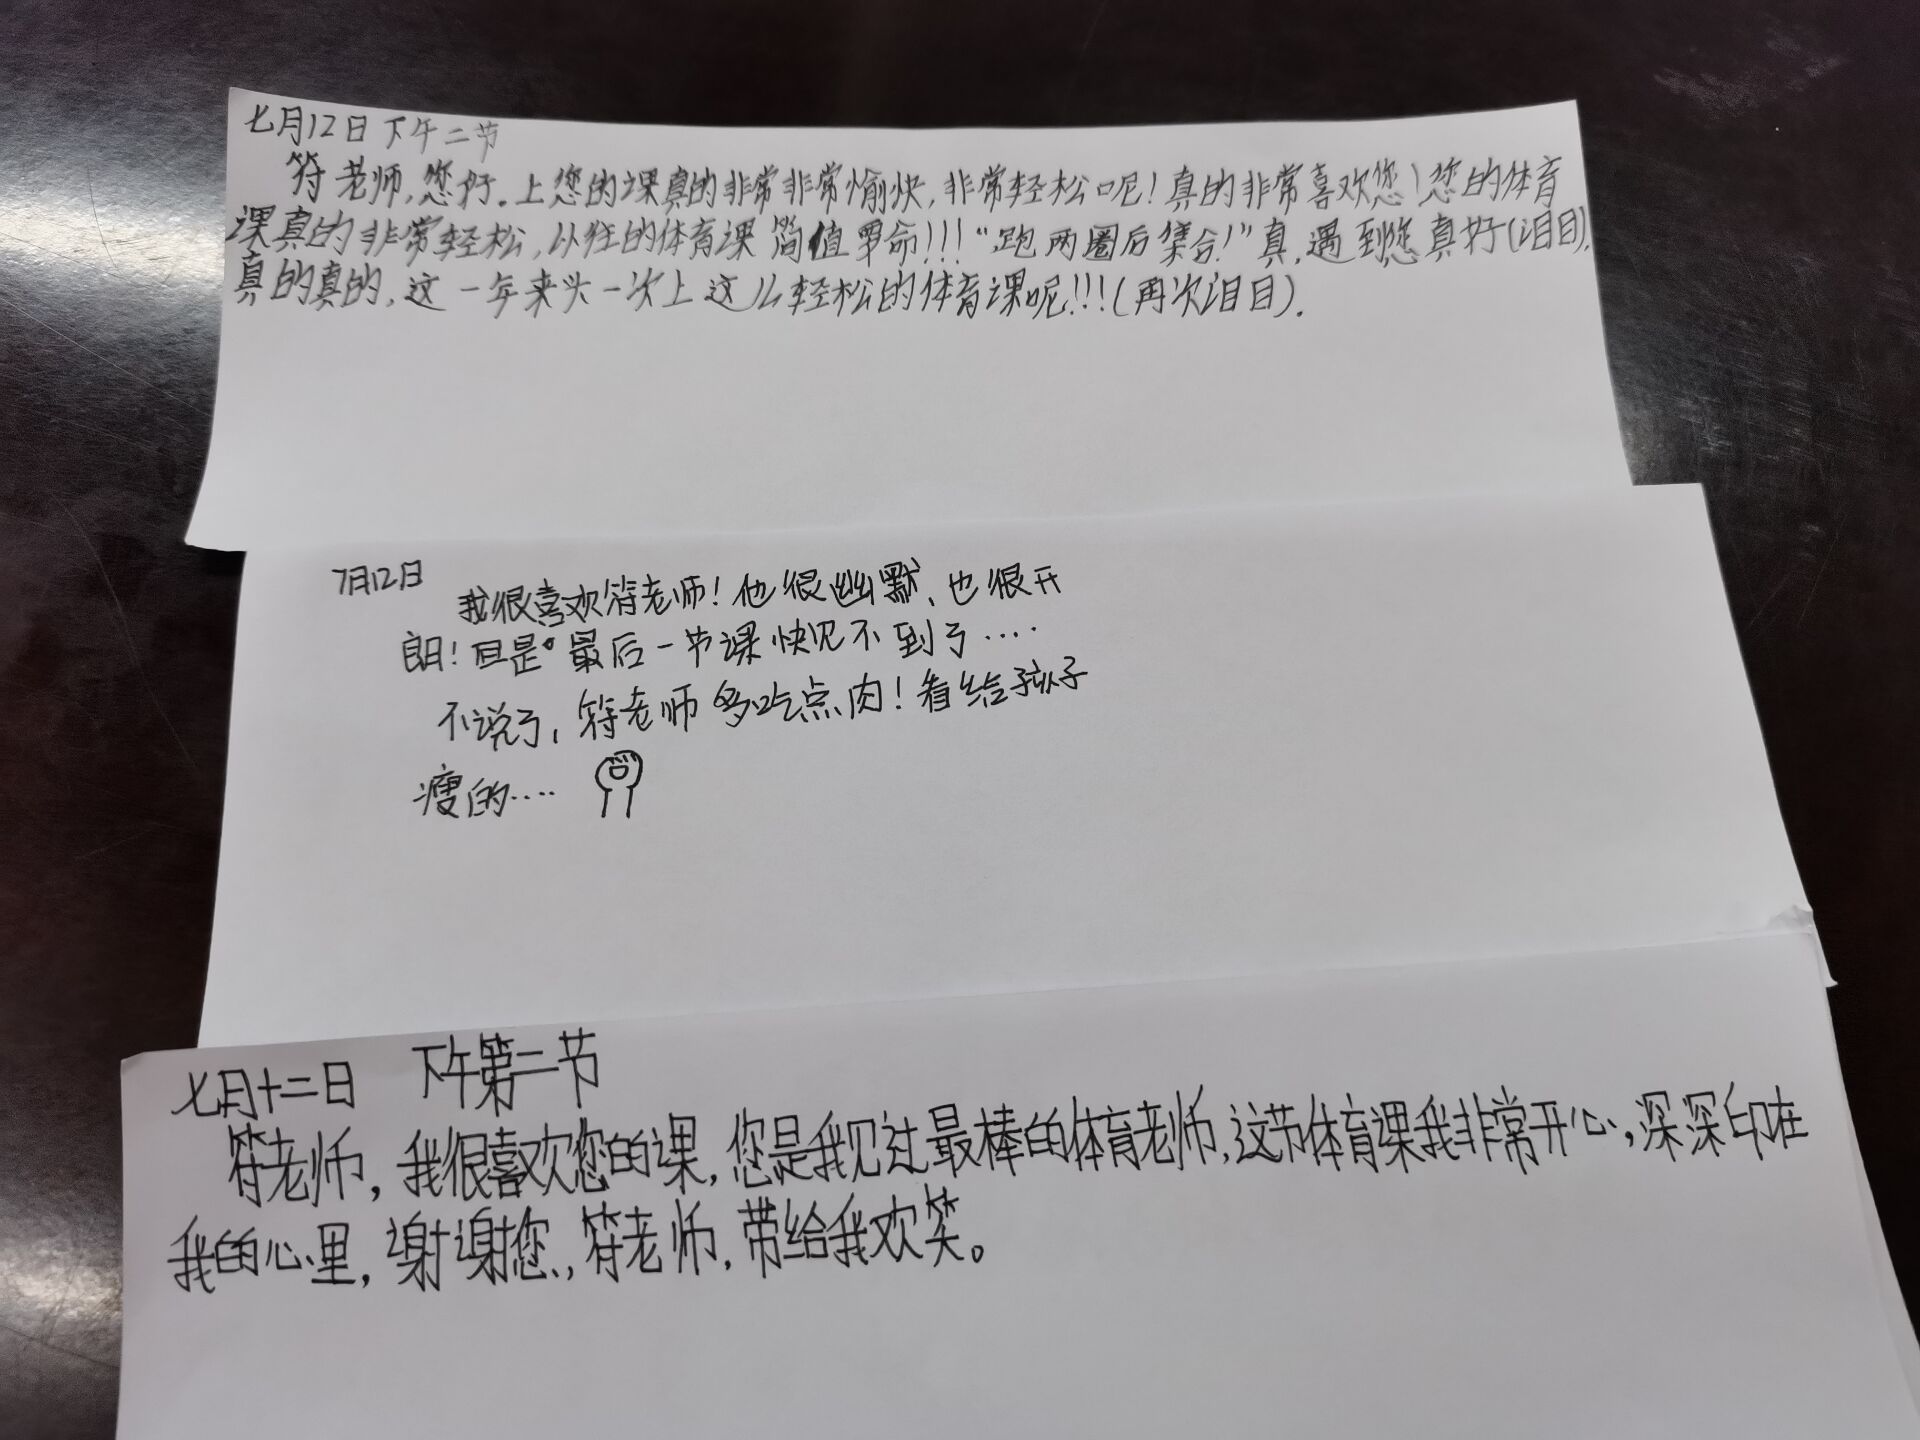 七月12日下午二节
符老师,您好.上您的课真的非常非常愉快,非常轻松呢!真的非常喜欢您!您的体育
课真的非常轻松,以往的体育课简值要命!!!“跑两圈后集合!”真,遇到您真好(泪目).
真的真的,这一年来头一次上这么轻松的体育课呢!!!(再次泪目).
7月12日
我很喜欢符老师!他很幽默、也很开
朗!但是 最后一节课快见不到了····
不说了,符老师多吃点肉!看给孩子
瘦的····
七月十二日 下午第二节
符老师,我很喜欢您的课,您是我见过最棒的体育老师,这节体育课我非常开心,深深印在
我的心里,谢谢您,符老师,带给我欢笑。